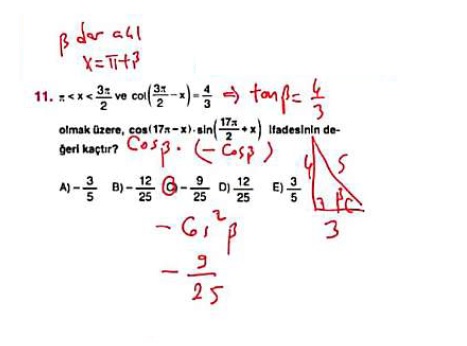 β dar açı
x=π+β
11. π < x < 3π/2 ve cot(3π/2 - x) = 4/3 ⇒ tanβ = 4/3
olmak üzere, cos(17π - x) · sin(17π/2 + x) ifadesinin de-
ğeri kaçtır? Cosβ · (-Cosβ)
A) - 3/5 B) - 12/25 C) - 9/25 D) 12/25 E) 3/5
4 5
3 β
3
- Cos²β
- 9/25